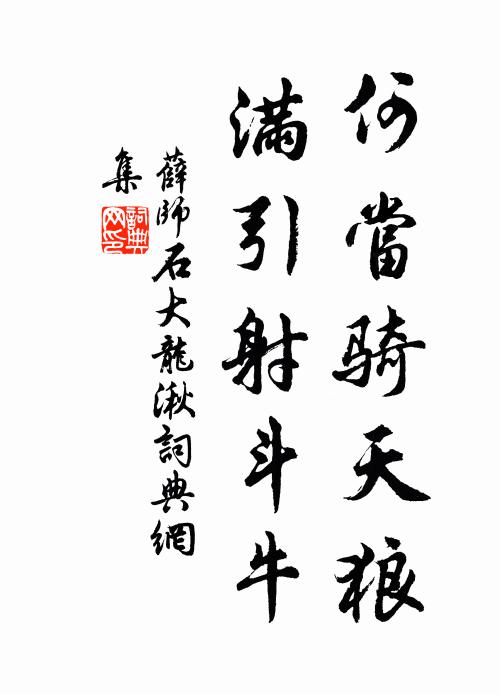 何當騎天狼
滿引射斗牛
薛師石大龍湫詞典網
集
詞典網印